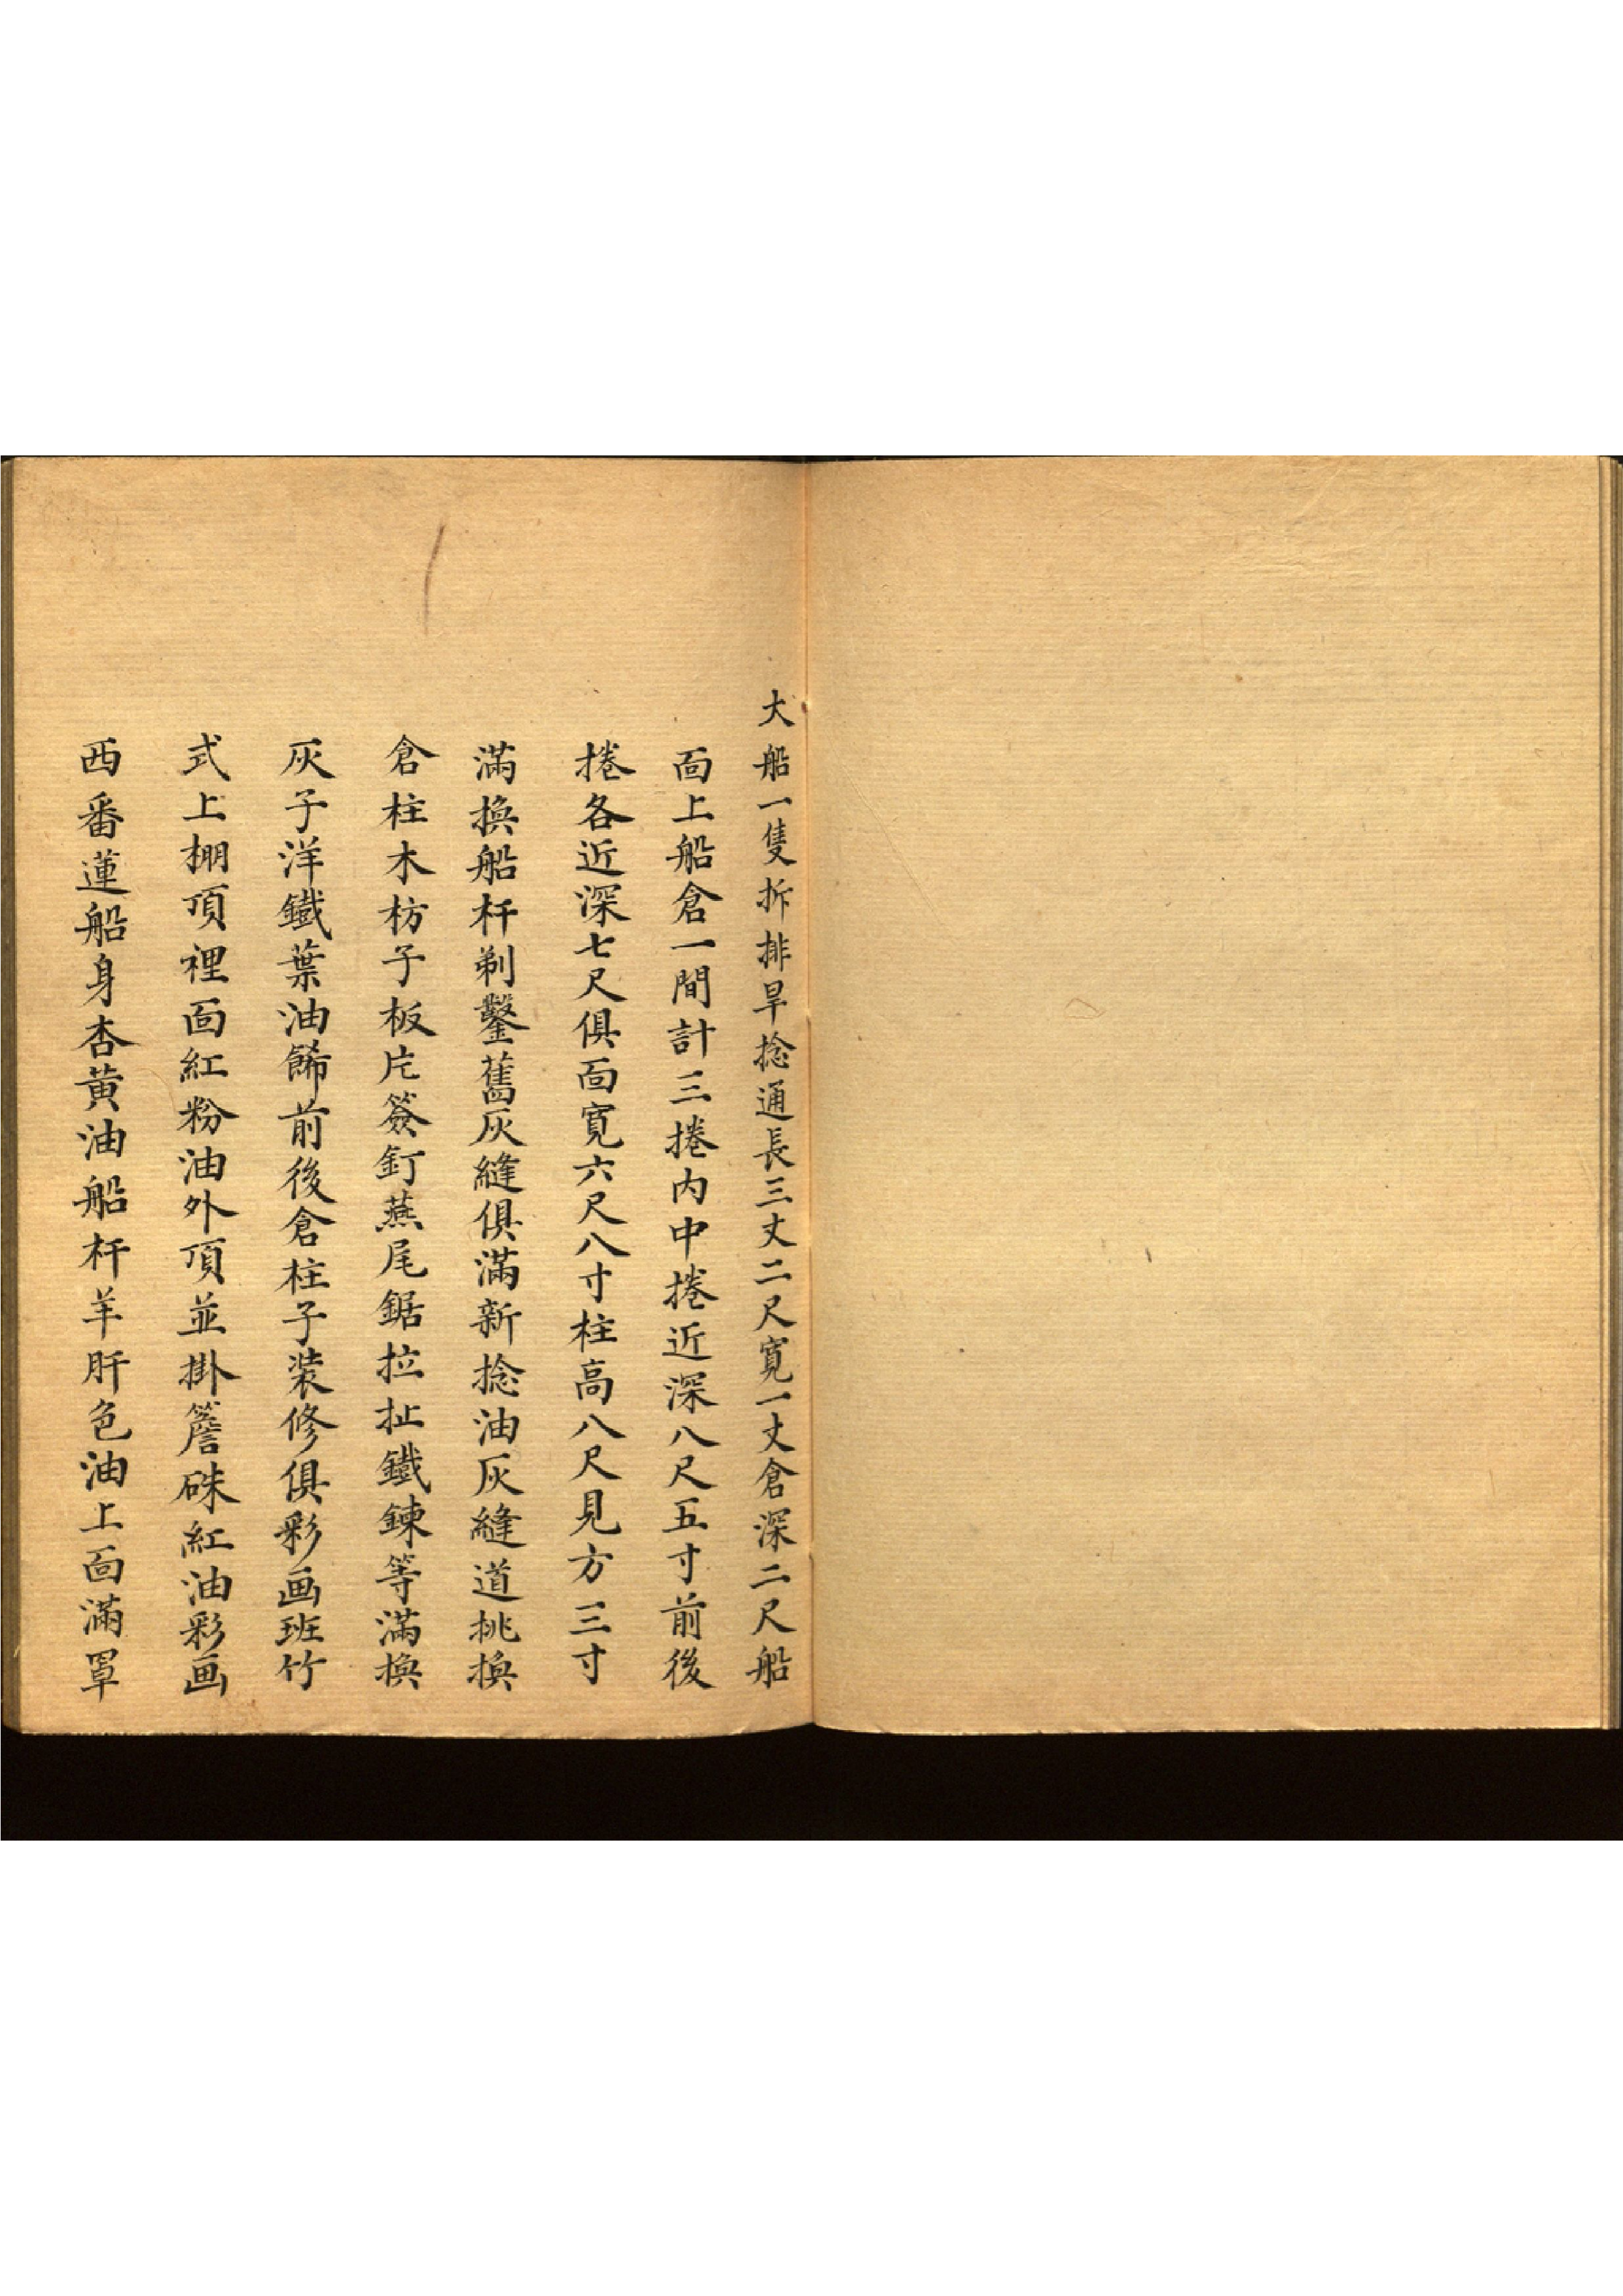 大船一隻拆排旱捻通長三丈二尺寬一丈倉深二尺船
面上船倉一間計三捲内中捲近深八尺五寸前後
捲各近深七尺俱面寬六尺八寸柱高八尺見方三寸
滿換船杆剃鑿舊灰縫俱滿新捻油灰縫道挑換
倉柱木枋子板片簽釘燕尾鋸拉扯鐵鍊等滿換
灰子洋鐵葉油餙前後倉柱子裝修俱彩画班竹
式上棚頂裡面紅粉油外頂並掛簷硃紅油彩画
西番蓮船身杏黃油船杆羊肝色油上面滿罩